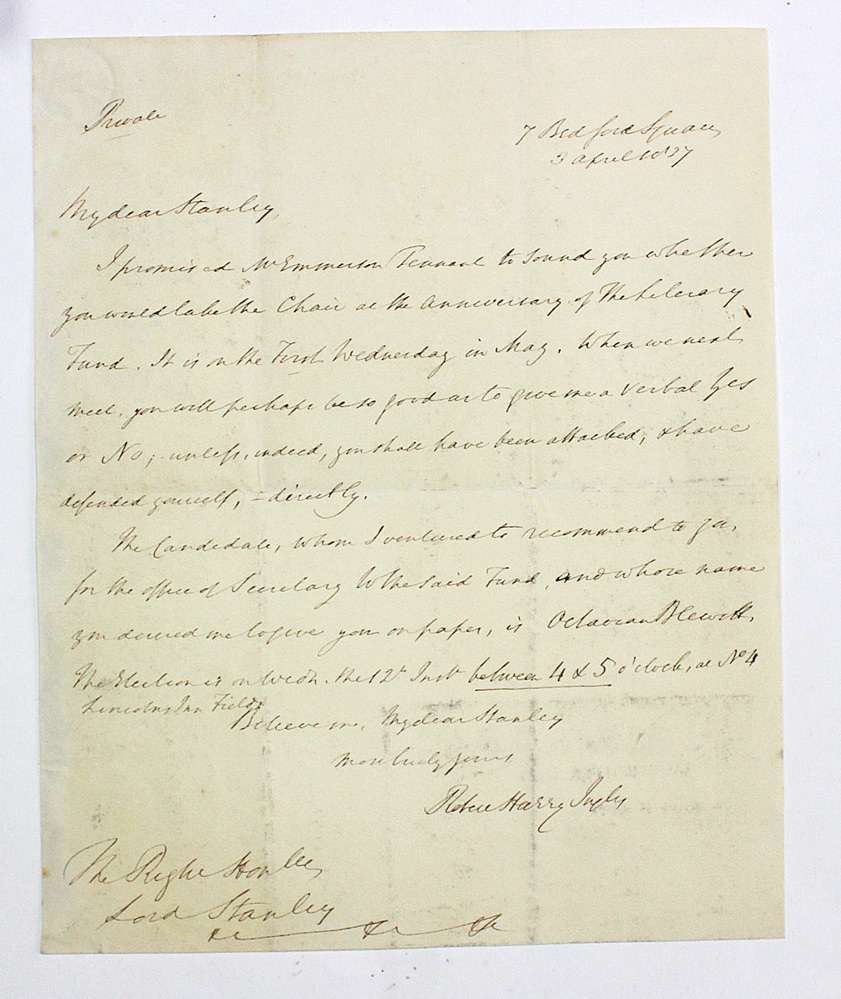 Private
7 Bedford Square
3 April 1837
My dear Stanley,
I promised Mr Emmerson Tennant to sound you whether
you would take the Chair at the Anniversary of the Literary
Fund. It is on the First Wednesday in May. When we next
meet, you will perhaps be so good as to give me a verbal Yes
or No; unless, indeed, you shall have been attacked, & have
defended yourself, directly.
The Candidate, whom I ventured to recommend to you,
for the office of Secretary to the said Fund, and whose name
you desired me to give you on paper, is Octavian Blewitt.
The Election is on Wedn. the 12th Inst between 4 & 5 o'clock, at No 4
Lincolns Inn Fields
Believe me, My dear Stanley
most truly yours
Robert Harry Inglis
The Right Honble
Lord Stanley
&c &c &c